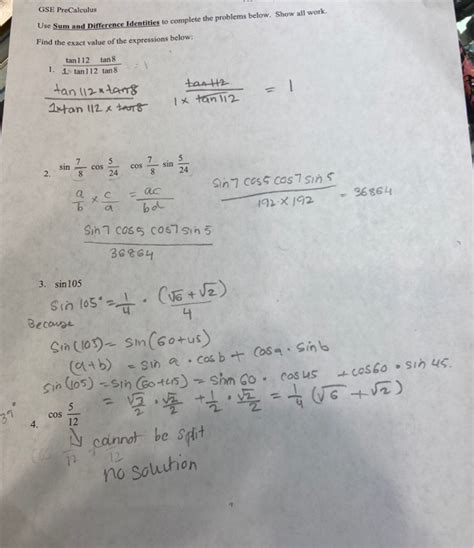 GSE PreCalculus
Use Sum and Difference Identities to complete the problems below. Show all work.
Find the exact value of the expressions below:
1. tan112 tan8
1 tan112 tan8
= 1
tan 112 x tan8
1xtan 112 x tan8
tan 112
1 x tan112
= 1
2. sin 7/8 cos 5/24 cos 7/8 sin 5/24
a/b x c/a = ac/bd
sin7 cos5 cos7 sin5
192 x 192
= 36864
Sin7 cos5 cos7 sin5
36864
3. sin105
Sin 105° = 1/4 · (√6 + √2)/4
Because
Sin(105) = sin(60+45)
(a+b) = sin a · cosb + cosa · sinb
sin(105) = sin(60+45) = sin 60 · cos45 + cos60 · sin 45.
= √3/2 · √2/2 + 1/2 · √2/2 = 1/4 (√6 + √2)
4. cos 5/12
cannot be split
cos
12
12
no solution